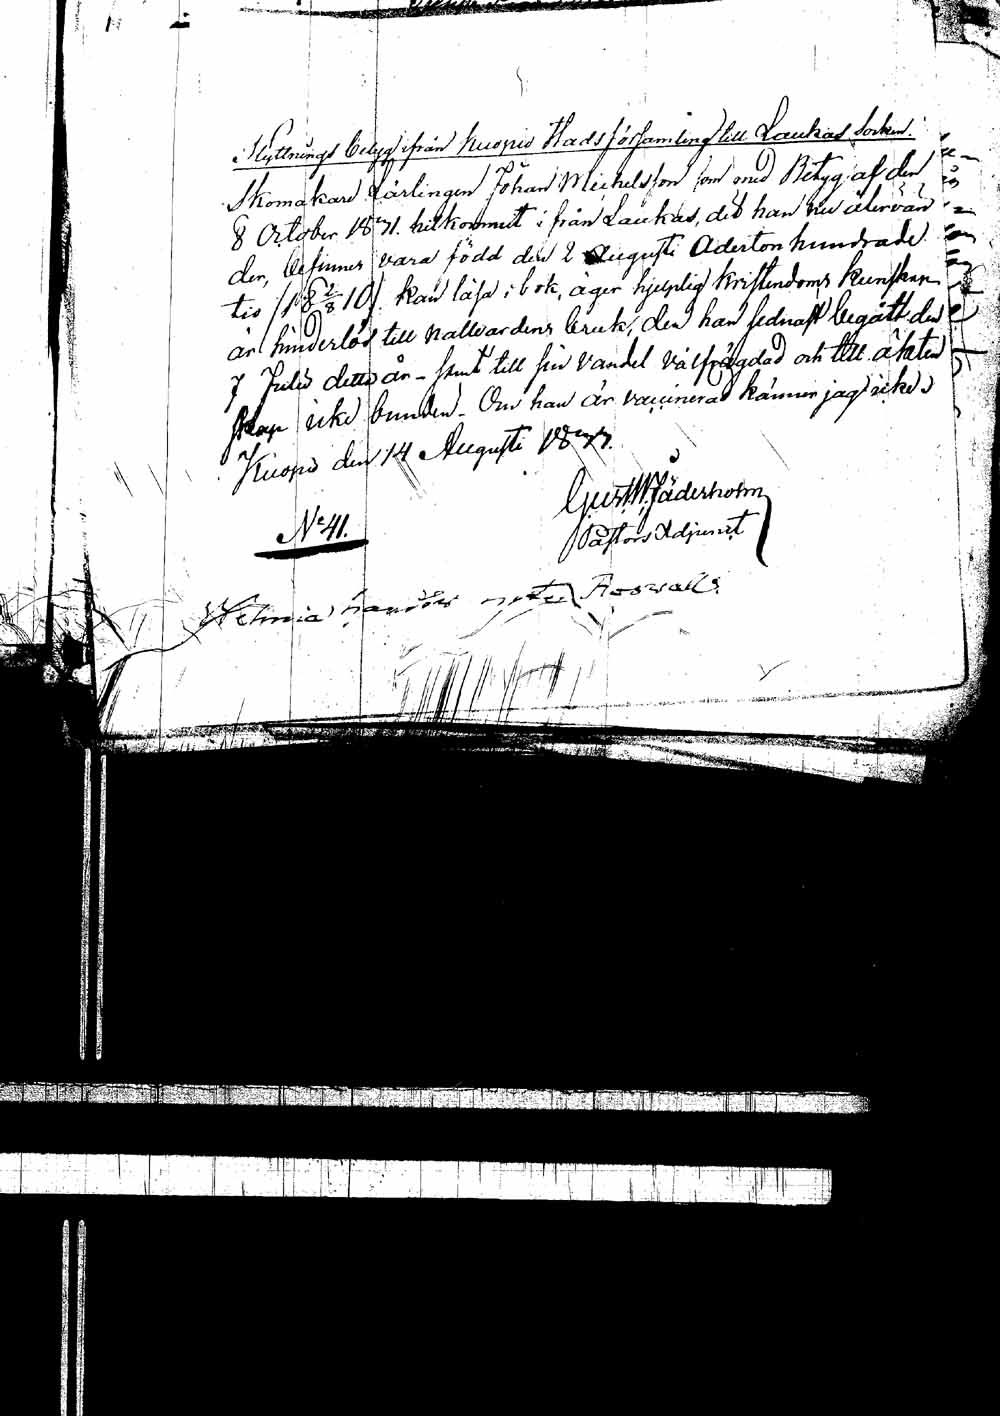 Flyttnings betyg ifrån Kuopio Stads församling till Laukas Socken.
Skomakare Lärlingen Johan Michelsson som med Betyg af den
8 October 1871. hitkommit i från Laukas, dit han nu återvän
der, befinnes vara född den 2 Augusti Adertonhundrade
tio /18 2/8 10/ kan läsa i bok, äger hjelplig kristendoms kunskap
är hinderlös till nattvardens bruk, den han sednast begått den
7 Julii detta år – samt till sin vandel välfrägdad och till äkten
skap icke bunden – Om han är vaccinerad känner jag icke
Kuopio den 14 Augusti
Gust. W. Jäderholm
Pastors Adjunct
No 41.